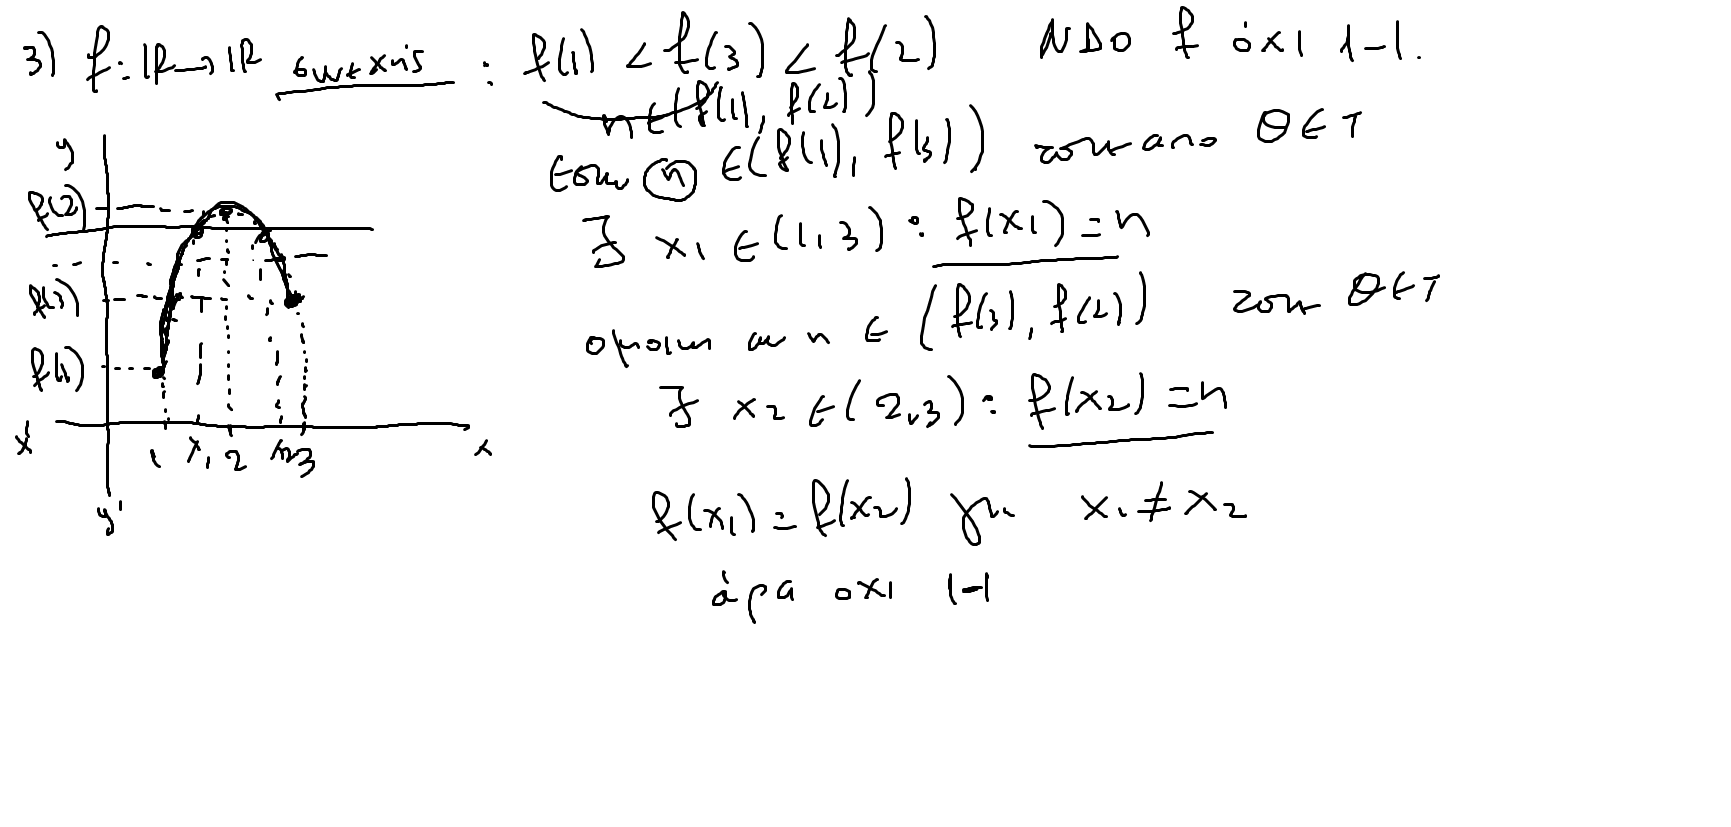 3) f: ℝ → ℝ συνεχής : f(1) < f(3) < f(2) ΝΔΟ f όχι 1-1.
η ∈ (f(1), f(2))
έστω η ∈ (f(1), f(3)) τότε από ΘΕΤ
∃ x₁ ∈ (1,3) : f(x₁) = η
όμοια αν η ∈ (f(3), f(2)) τότε ΘΕΤ
∃ x₂ ∈ (2,3) : f(x₂) = η
f(x₁) = f(x₂) για x₁ ≠ x₂
άρα όχι 1-1
y
f(2)
f(3)
f(1)
x' 1 x₁ 2 x₂ 3 x
y'